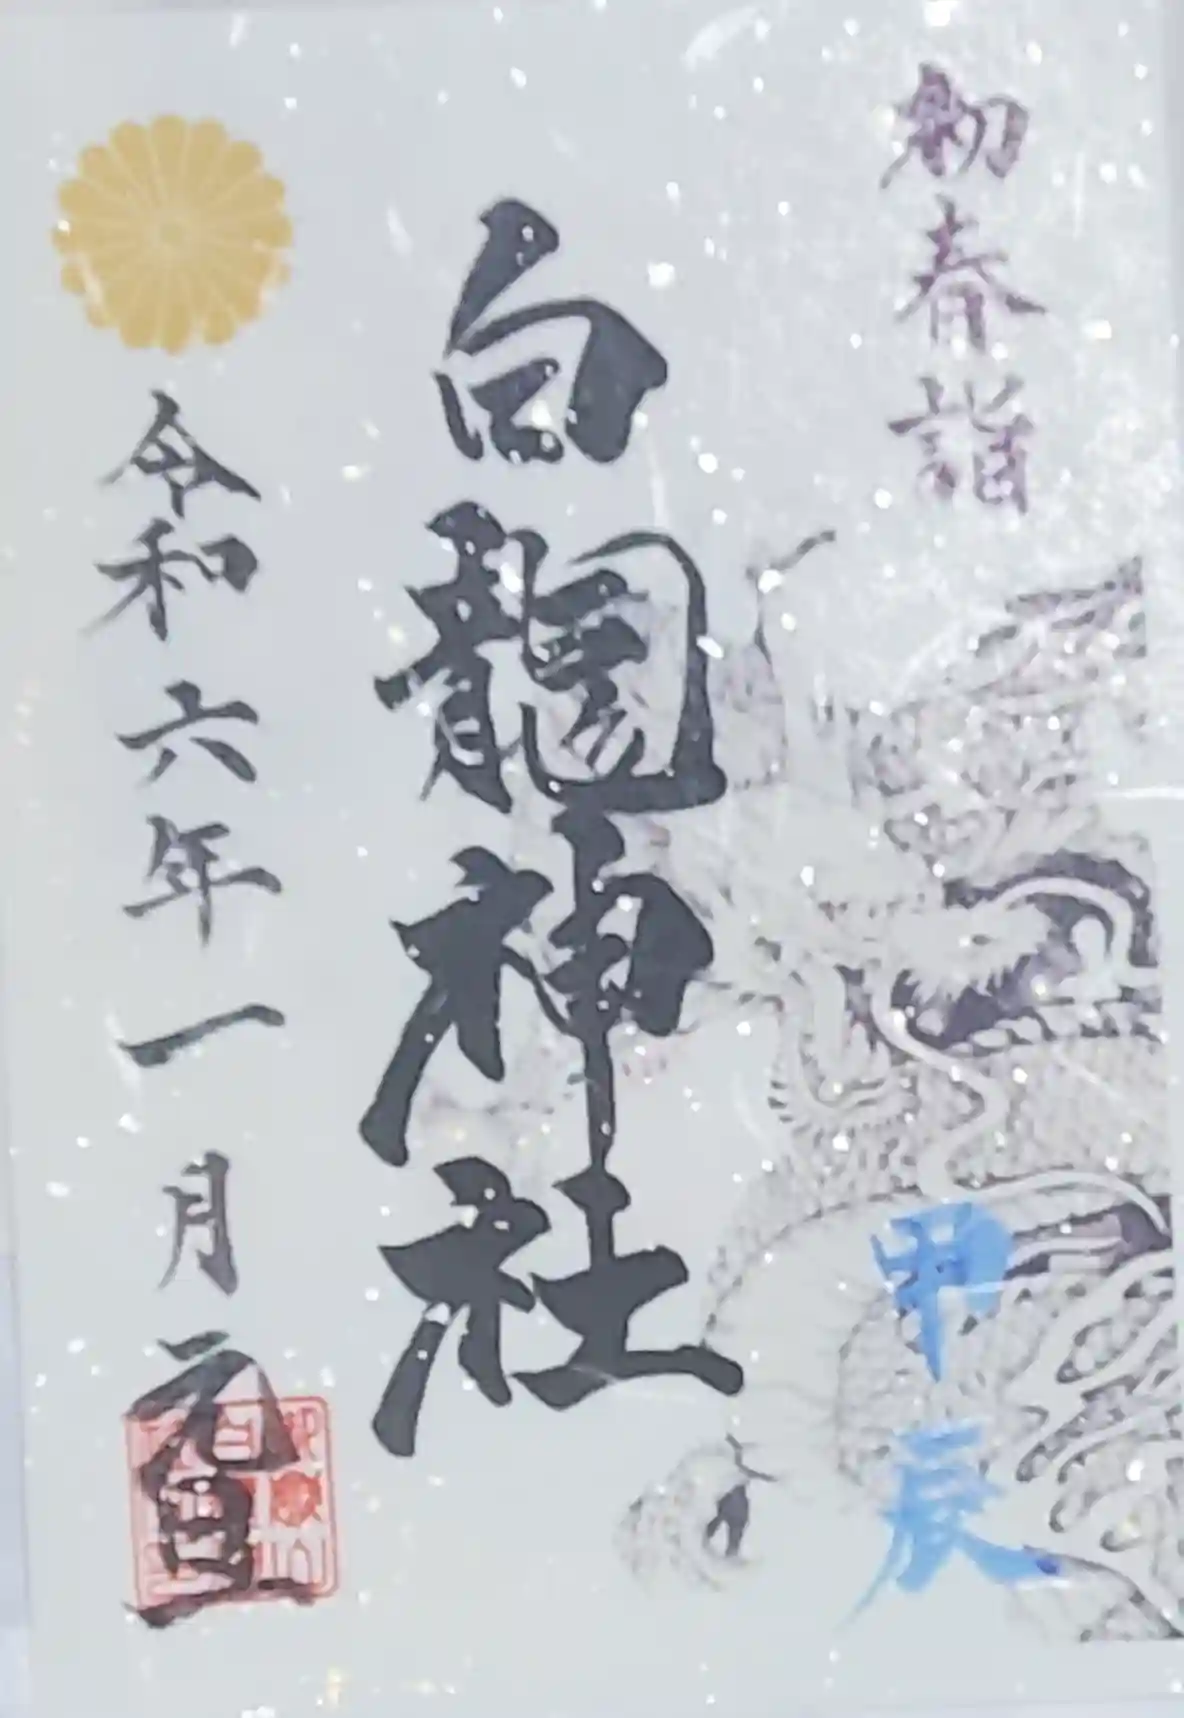 初春詣
甲辰
白龍神社
令和六年一月元旦